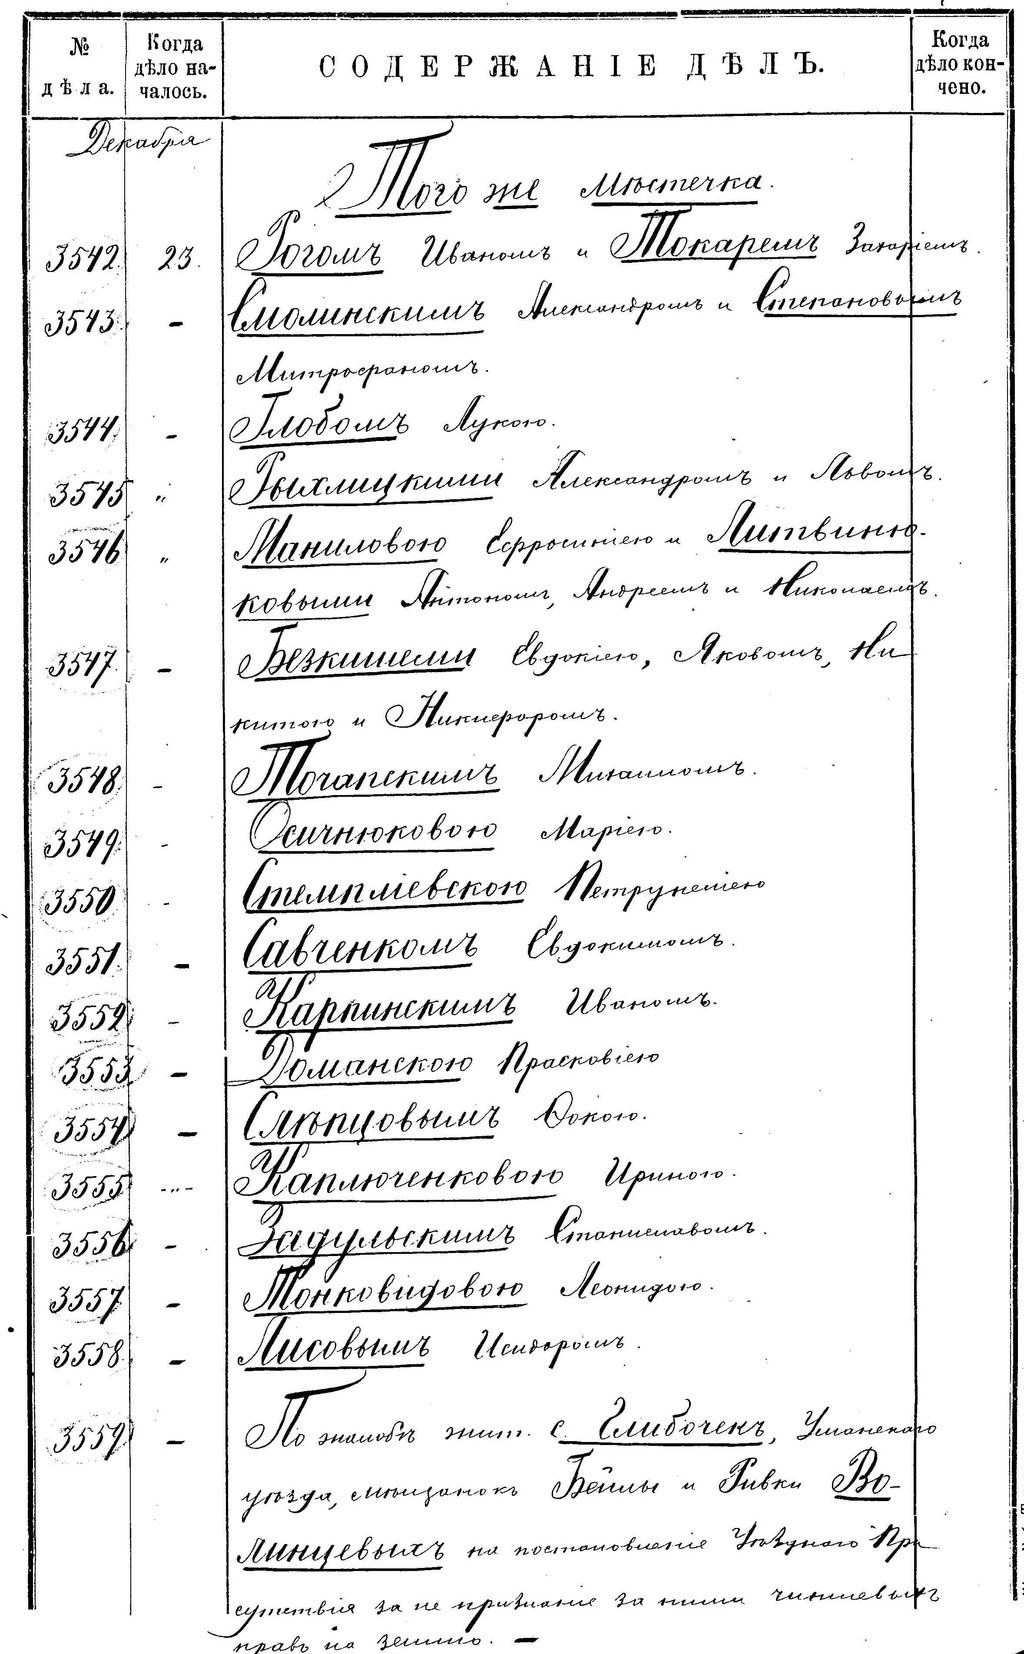 № дѣла.
Когда дѣло началось.
СОДЕРЖАНІЕ ДѢЛЪ.
Когда дѣло кончено.
Декабря
Того же мѣстечка.
3542. 23. Рогомъ Иваномъ и Токаремъ Захаріемъ.
3543. – Смолинскимъ Александромъ и Степановымъ
Митрофаномъ.
3544. – Глобомъ Лукою.
3545 " Рыхлицкими Александромъ и Львомъ.
3546 " Маниловою Ефросиніею и Литвиню-
ковыми Антономъ, Андреемъ и Николаемъ.
3547. – Безкишеми Евдокіею, Яковомъ, Ни
китою и Никифоромъ.
3548. - Точапскимъ Михаиломъ.
3549. - Осичнюковою Маріею.
3550. - Стемпліевскою Петрунеліею
3551. – Савченкомъ Евдокимомъ.
3552 - Карпинскимъ Иваномъ.
3553 – Доманскою Прасковіею
3554 – Слѣпцовымъ Ѳокою.
3555 - Каплюченковою Ириною.
3556 - Задульскимъ Станиславомъ.
3557 – Тонковидовою Леонидою.
3558. – Лисовымъ Исидоромъ.
3559 – По жалобѣ жит. с. Глибочекъ, Уманскаго
уѣзда, мѣщанокъ Бейлы и Ривки Во-
линцевыхъ на постановленіе Уѣзднаго При
сутствія за не признаніе за ними чиншевыхъ
правъ на землю. –